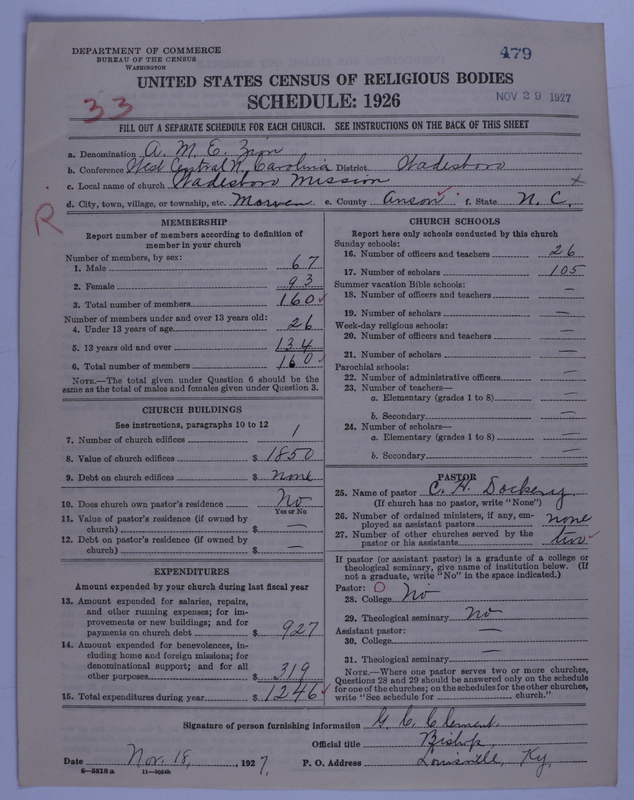 DEPARTMENT OF COMMERCE
BUREAU OF THE CENSUS
WASHINGTON
479
UNITED STATES CENSUS OF RELIGIOUS BODIES
SCHEDULE: 1926
NOV 29 1927
33
FILL OUT A SEPARATE SCHEDULE FOR EACH CHURCH. SEE INSTRUCTIONS ON THE BACK OF THIS SHEET
a. Denomination A. M. E. Zion
b. Conference West Central N. Carolina District Wadesboro
c. Local name of church Wadesboro Mission x
d. City, town, village, or township, etc. Morven e. County Anson ✓ f. State N. C.
R
MEMBERSHIP
Report number of members according to definition of
member in your church
Number of members, by sex:
1. Male 67
2. Female 93
3. Total number of members 160 ✓
Number of members under and over 13 years old:
4. Under 13 years of age 26
5. 13 years old and over 134
6. Total number of members 160 ✓
NOTE.—The total given under Question 6 should be the
same as the total of males and females given under Question 3.
CHURCH BUILDINGS
See instructions, paragraphs 10 to 12
7. Number of church edifices 1
8. Value of church edifices $ 1850
9. Debt on church edifices $ none
10. Does church own pastor's residence No
Yes or No
11. Value of pastor's residence (if owned by
church) $ —
12. Debt on pastor's residence (if owned by
church) $ —
EXPENDITURES
Amount expended by your church during last fiscal year
13. Amount expended for salaries, repairs,
and other running expenses; for im-
provements or new buildings; and for
payments on church debt $ 927
14. Amount expended for benevolences, in-
cluding home and foreign missions; for
denominational support; and for all
other purposes $ 319
15. Total expenditures during year $ 1246 ✓
CHURCH SCHOOLS
Report here only schools conducted by this church
Sunday schools:
16. Number of officers and teachers 26
17. Number of scholars 105
Summer vacation Bible schools:
18. Number of officers and teachers —
19. Number of scholars —
Week-day religious schools:
20. Number of officers and teachers —
21. Number of scholars —
Parochial schools:
22. Number of administrative officers —
23. Number of teachers—
a. Elementary (grades 1 to 8) —
b. Secondary —
24. Number of scholars—
a. Elementary (grades 1 to 8) —
b. Secondary —
PASTOR
25. Name of pastor C. H. Dockery
(If church has no pastor, write "None")
26. Number of ordained ministers, if any, em-
ployed as assistant pastors none
27. Number of other churches served by the
pastor or his assistants two ✓
If pastor (or assistant pastor) is a graduate of a college or
theological seminary, give name of institution below. (If
not a graduate, write "No" in the space indicated.)
Pastor: O
28. College No
29. Theological seminary No
Assistant pastor: —
30. College —
31. Theological seminary —
NOTE.—Where one pastor serves two or more churches,
Questions 28 and 29 should be answered only on the schedule
for one of the churches; on the schedules for the other churches,
write "See schedule for church."
Signature of person furnishing information G. C. Clement
Official title Bishop
Date Nov. 18, 1927. P. O. Address Louisville, Ky.